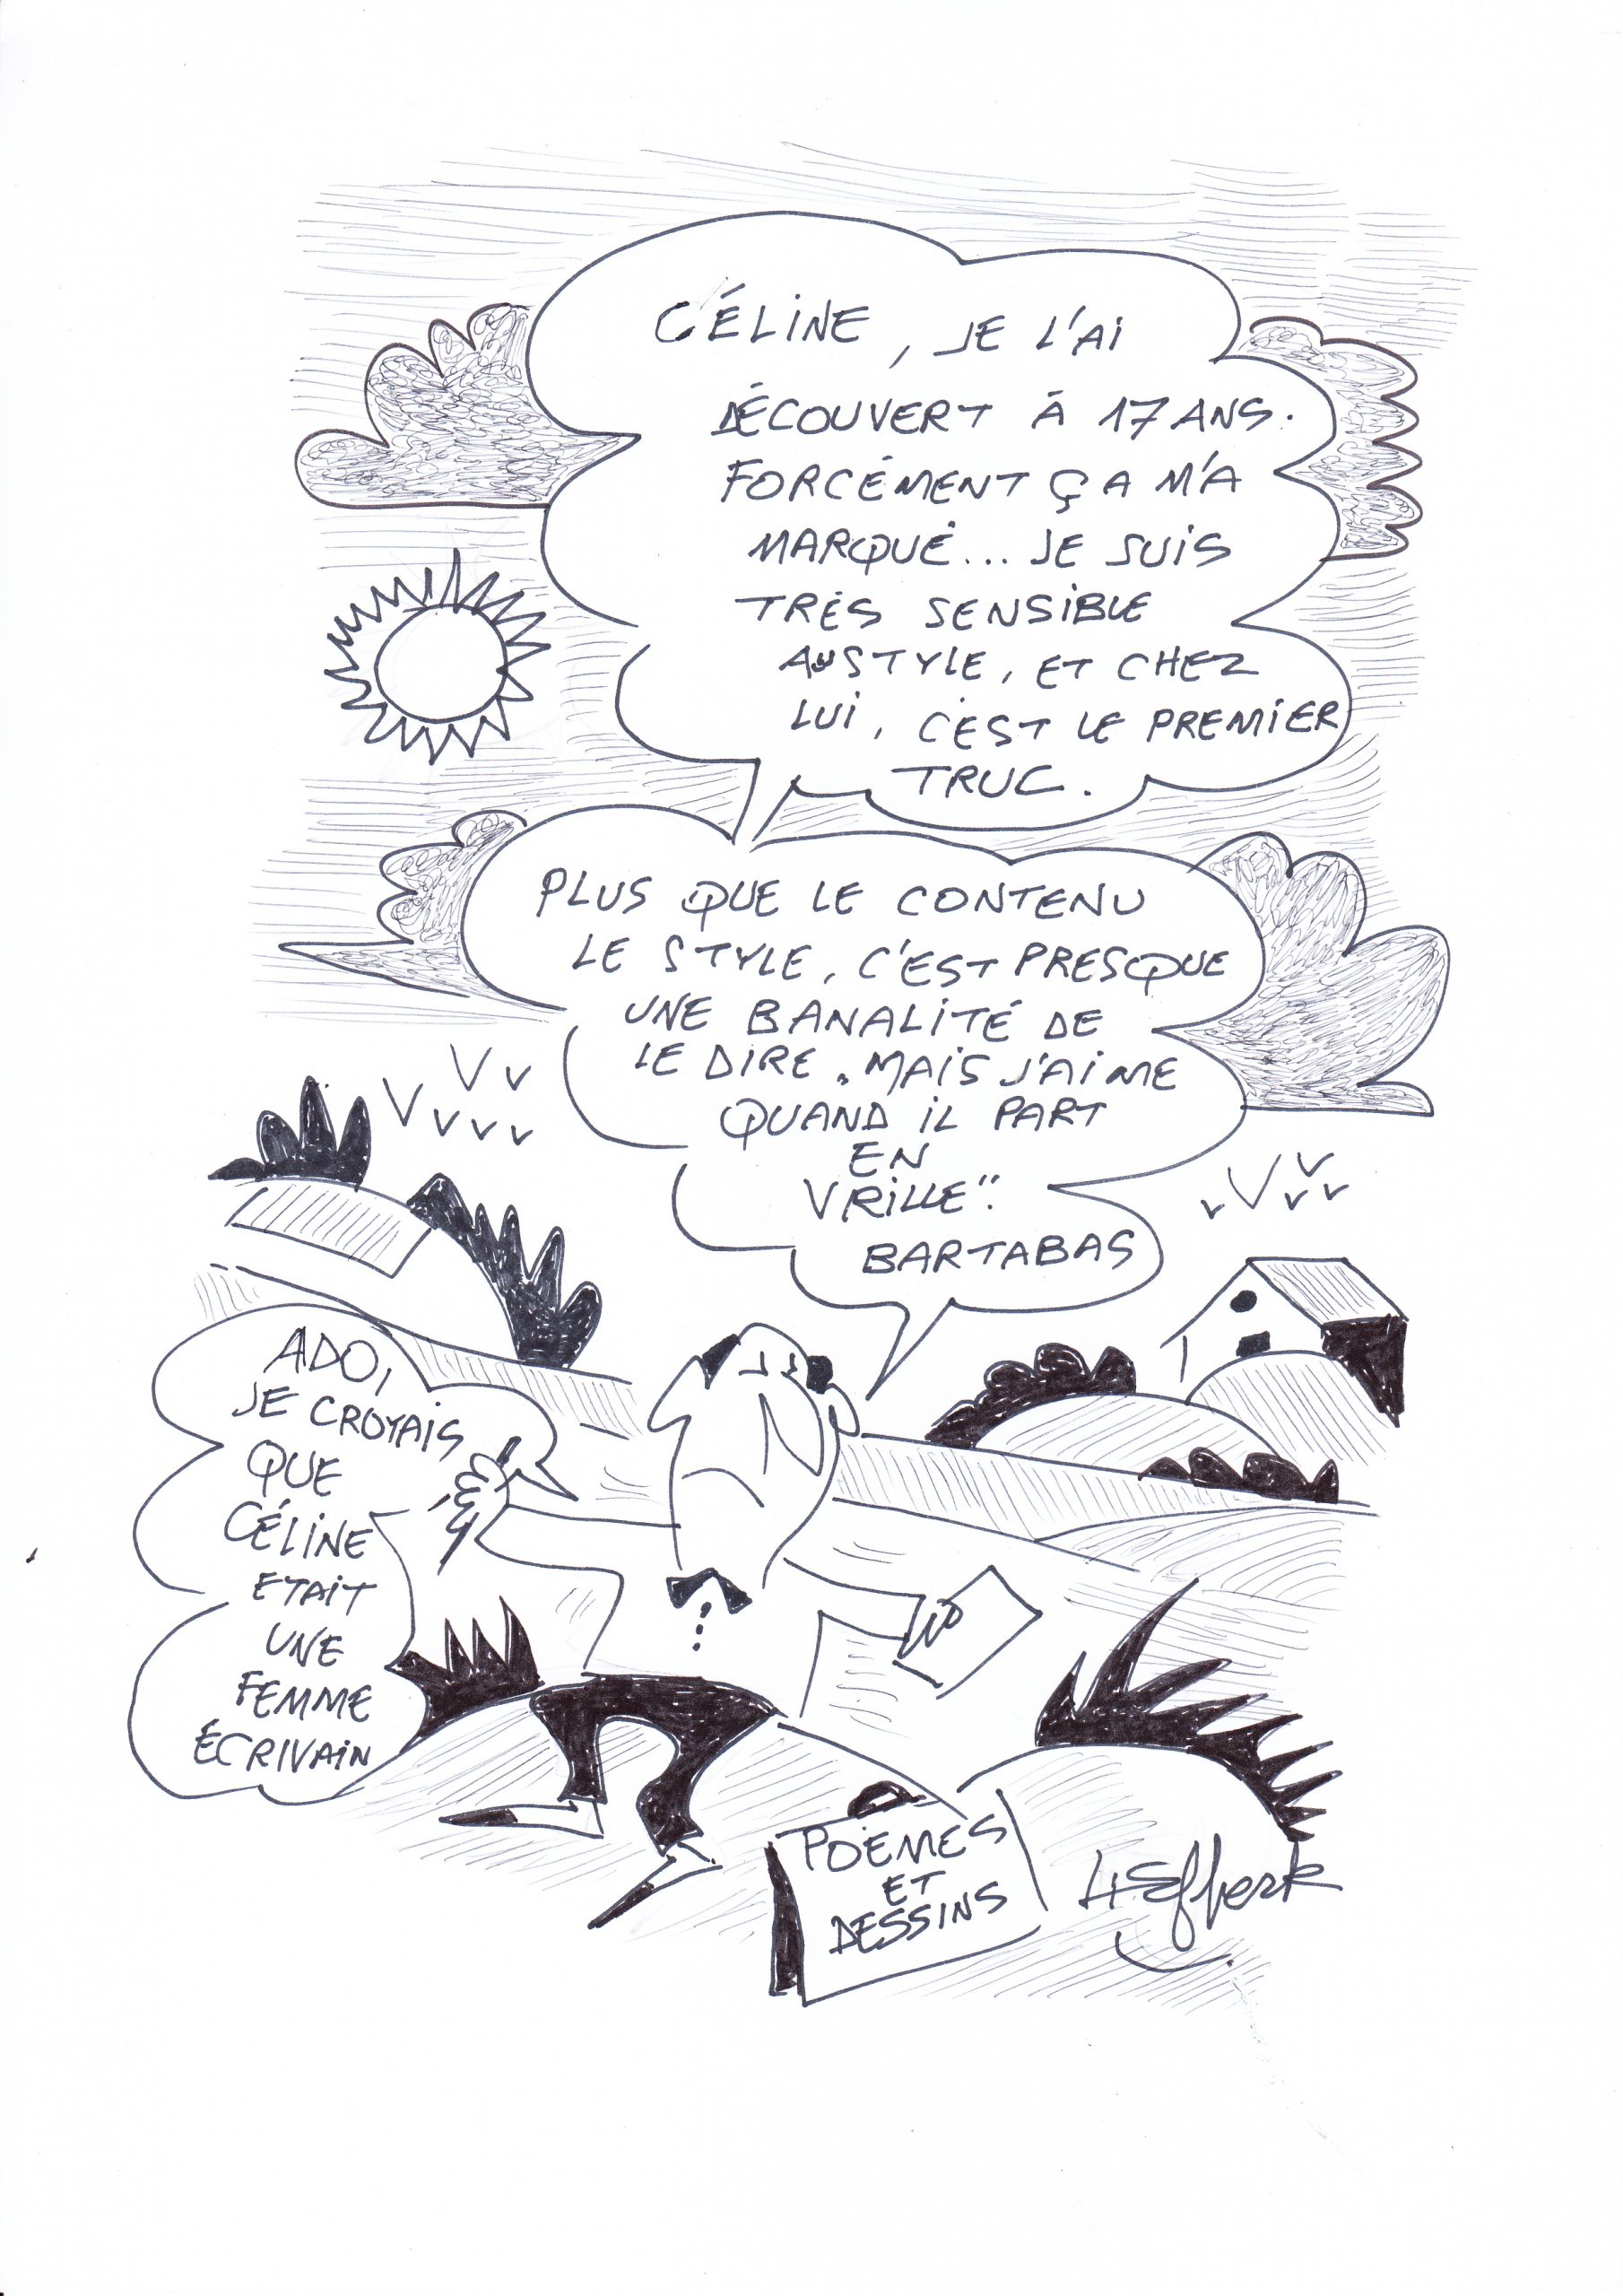 CÉLINE, JE L'AI
DÉCOUVERT À 17 ANS.
FORCÉMENT ÇA M'A
MARQUÉ... JE SUIS
TRÈS SENSIBLE
AU STYLE, ET CHEZ
LUI, C'EST LE PREMIER
TRUC.
PLUS QUE LE CONTENU
LE STYLE, C'EST PRESQUE
UNE BANALITÉ DE
LE DIRE. MAIS J'AIME
QUAND IL PART
EN
VRILLE".
BARTABAS
ADO,
JE CROYAIS
QUE
CÉLINE
ETAIT
UNE
FEMME
ÉCRIVAIN
POÈMES
ET
DESSINS